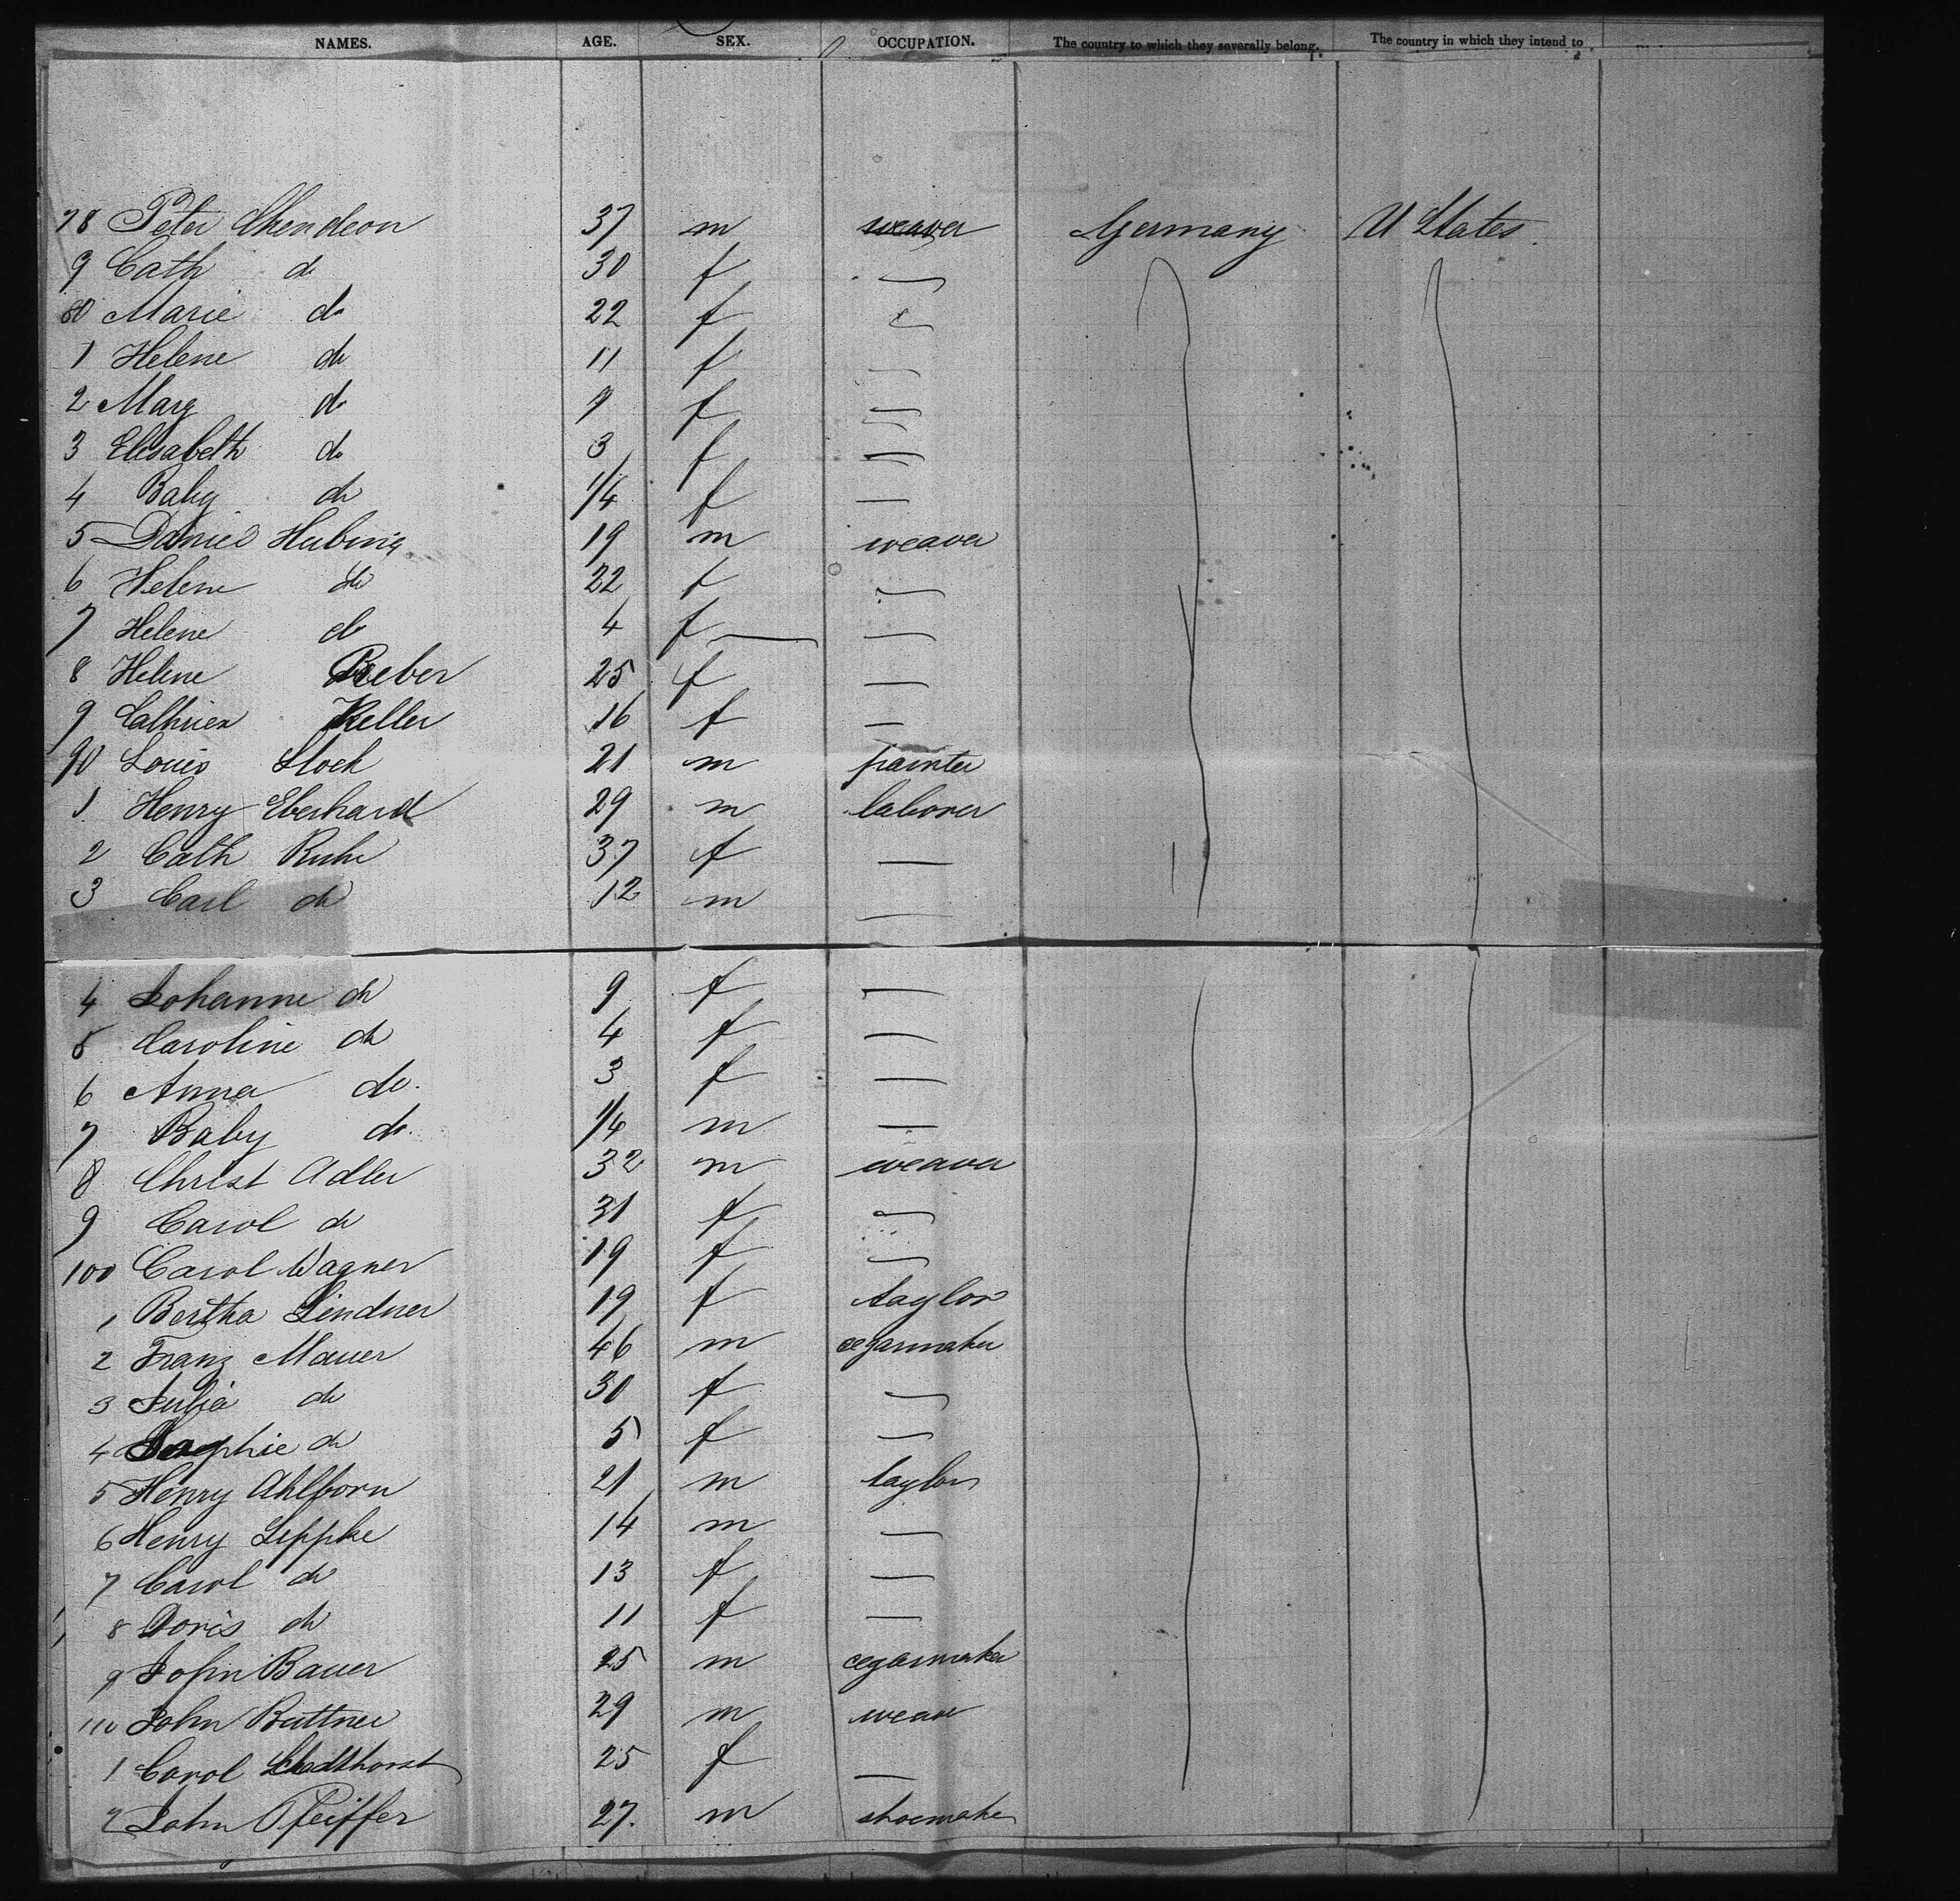 NAMES. AGE. SEX. OCCUPATION. The country to which they severally belong. The country in which they intend to
78 Peter 37 m weaver Germany U States.
9 Cath do 30 f —
80 Marie do 22 f —
1 Helene do 11 f —
2 Marg do 9 f —
3 Elisabeth do 3 f —
4 Baby do 1/4 f —
5 Daniel Hubing 19 m weaver
6 Helene do 22 f —
7 Helene do 4 f —
8 Helene Reeber 25 f —
9 Cathrien Keller 16 f —
90 Louis Stock 21 m painter
1 Henry Eberhard 29 m laborer
2 Cath Ruhe 37 f —
3 Carl do 12 m —
4 Johanne do 9 f —
5 Caroline do 4 f —
6 Anna do. 3 f —
7 Baby do. 1/4 m —
8 Christ Adler 32 m weaver
9 Carol do 31 f —
100 Carol Wagner 19 f —
1 Bertha Lindner 19 f taylor
2 Franz Mauer 46 m cegarmaker
3 Julia do 30 f —
4 Sophie do 5 f —
5 Henry Ahlborn 21 m taylor
6 Henry Leppke 14 m —
7 Carol do 13 f —
8 Doris do 11 f —
9 John Bauer 25 m cegarmaker
110 John Buttner 29 m weaver
1 Carol 25 f —
2 John Pfeiffer 27. m shoemaker